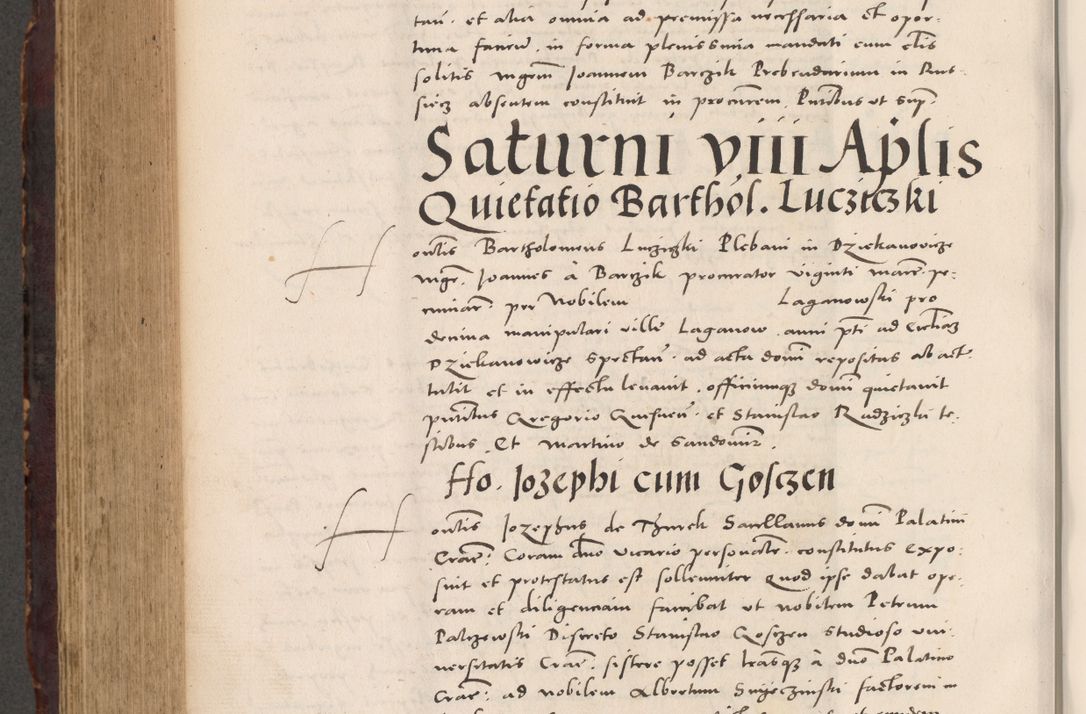 tan. et alia omnia ad premissa necessaria et opor-
tuna faciend. in forma plenissima mandati cum clis
solitis mgrm Joannem Barczik Prebendarium in Rus-
siecz absentem constituit in procurem. Pntibus ut sup.
Saturni viii Aplis
Quietatio Barthol. Lucziczki
H onlis Bartholomeus Lucziczki Plebani in Dziekanovicze
mgr Joannes à Barczik procurator viginti marc. pe-
cuniar. per Nobilem Laganowski pro
decima manipulari ville Laganow. anni pti ad Eccliaz
Dziekanowicze spectan. ad acta domi repositas ab act.
tulit et in effectu levavit. officiumqz domi quietavit
pntibus Gregorio et Stanislao Radziczki te-
stibus. Et Martino de Sandomir.
Ho. Jozephi cum Gosczen
H onlis Jozephus de Thurek domi Palatini
Crac: Coram dno vicario personalr. constitutus expo-
suit et protestatus est sollenniter Quod ipse dabat ope-
ram et diligenciam faciebat ut nobilem Petrum
Palczewski Discreto Stanislao Gosczen studioso uni-
versitatis Crac. sistere posset à dno Palatino
Crac: ad nobilem Albertum factorem in